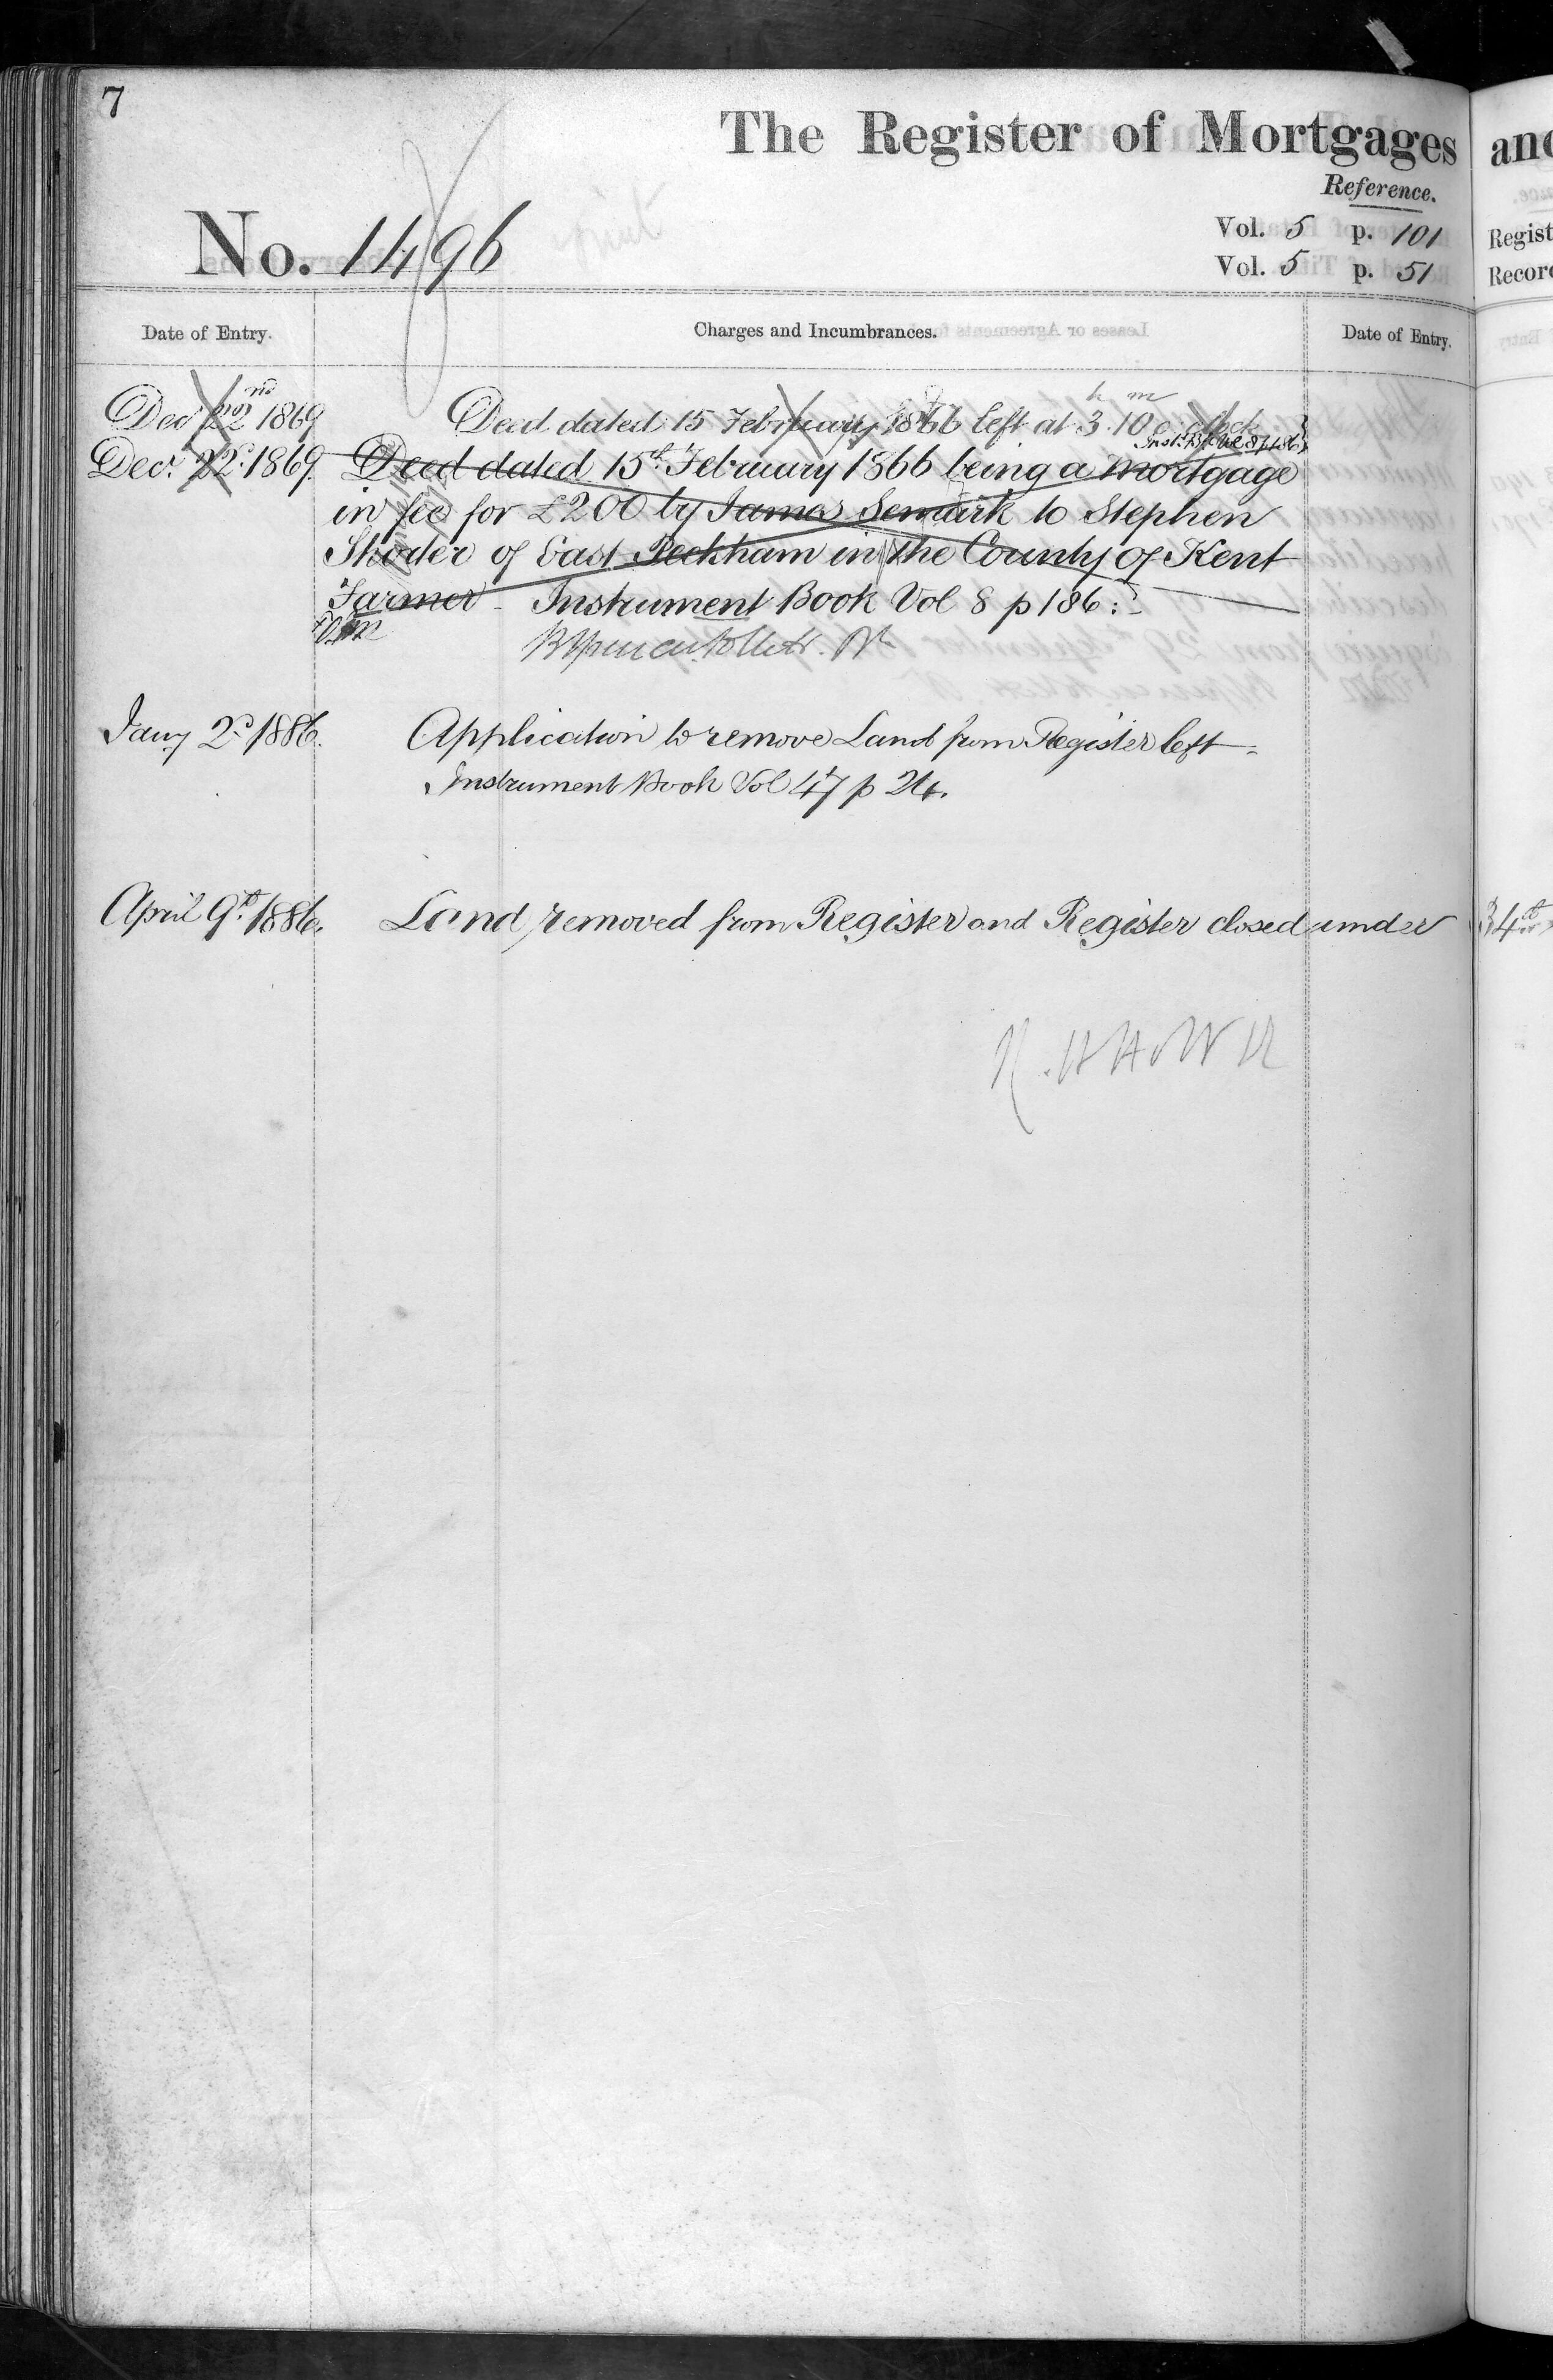 7
The Register of Mortgages and
Reference.
No. 1496
Vol. 5 p. 101 Regist
Vol. 5 p. 51 Record
Date of Entry. Charges and Incumbrances. Date of Entry.
Dec 22nd 1869 Deed dated 15 February 1866 left at 3h. 10m o'clock
Inst. Bk Vol 8 p 186
Decr. 22d. 1869. Deed dated 15th February 1866 being a mortgage
in fee for £200 by James Semark to Stephen
of East Peckham in the County of Kent
Farmer - Instrument Book Vol 8 p 186:-
Jany 2d 1886. Application to remove Land from Register left -
Instrument Book Vol 47 p 24.
April 9th. 1886. Land removed from Register and Register closed under 34th